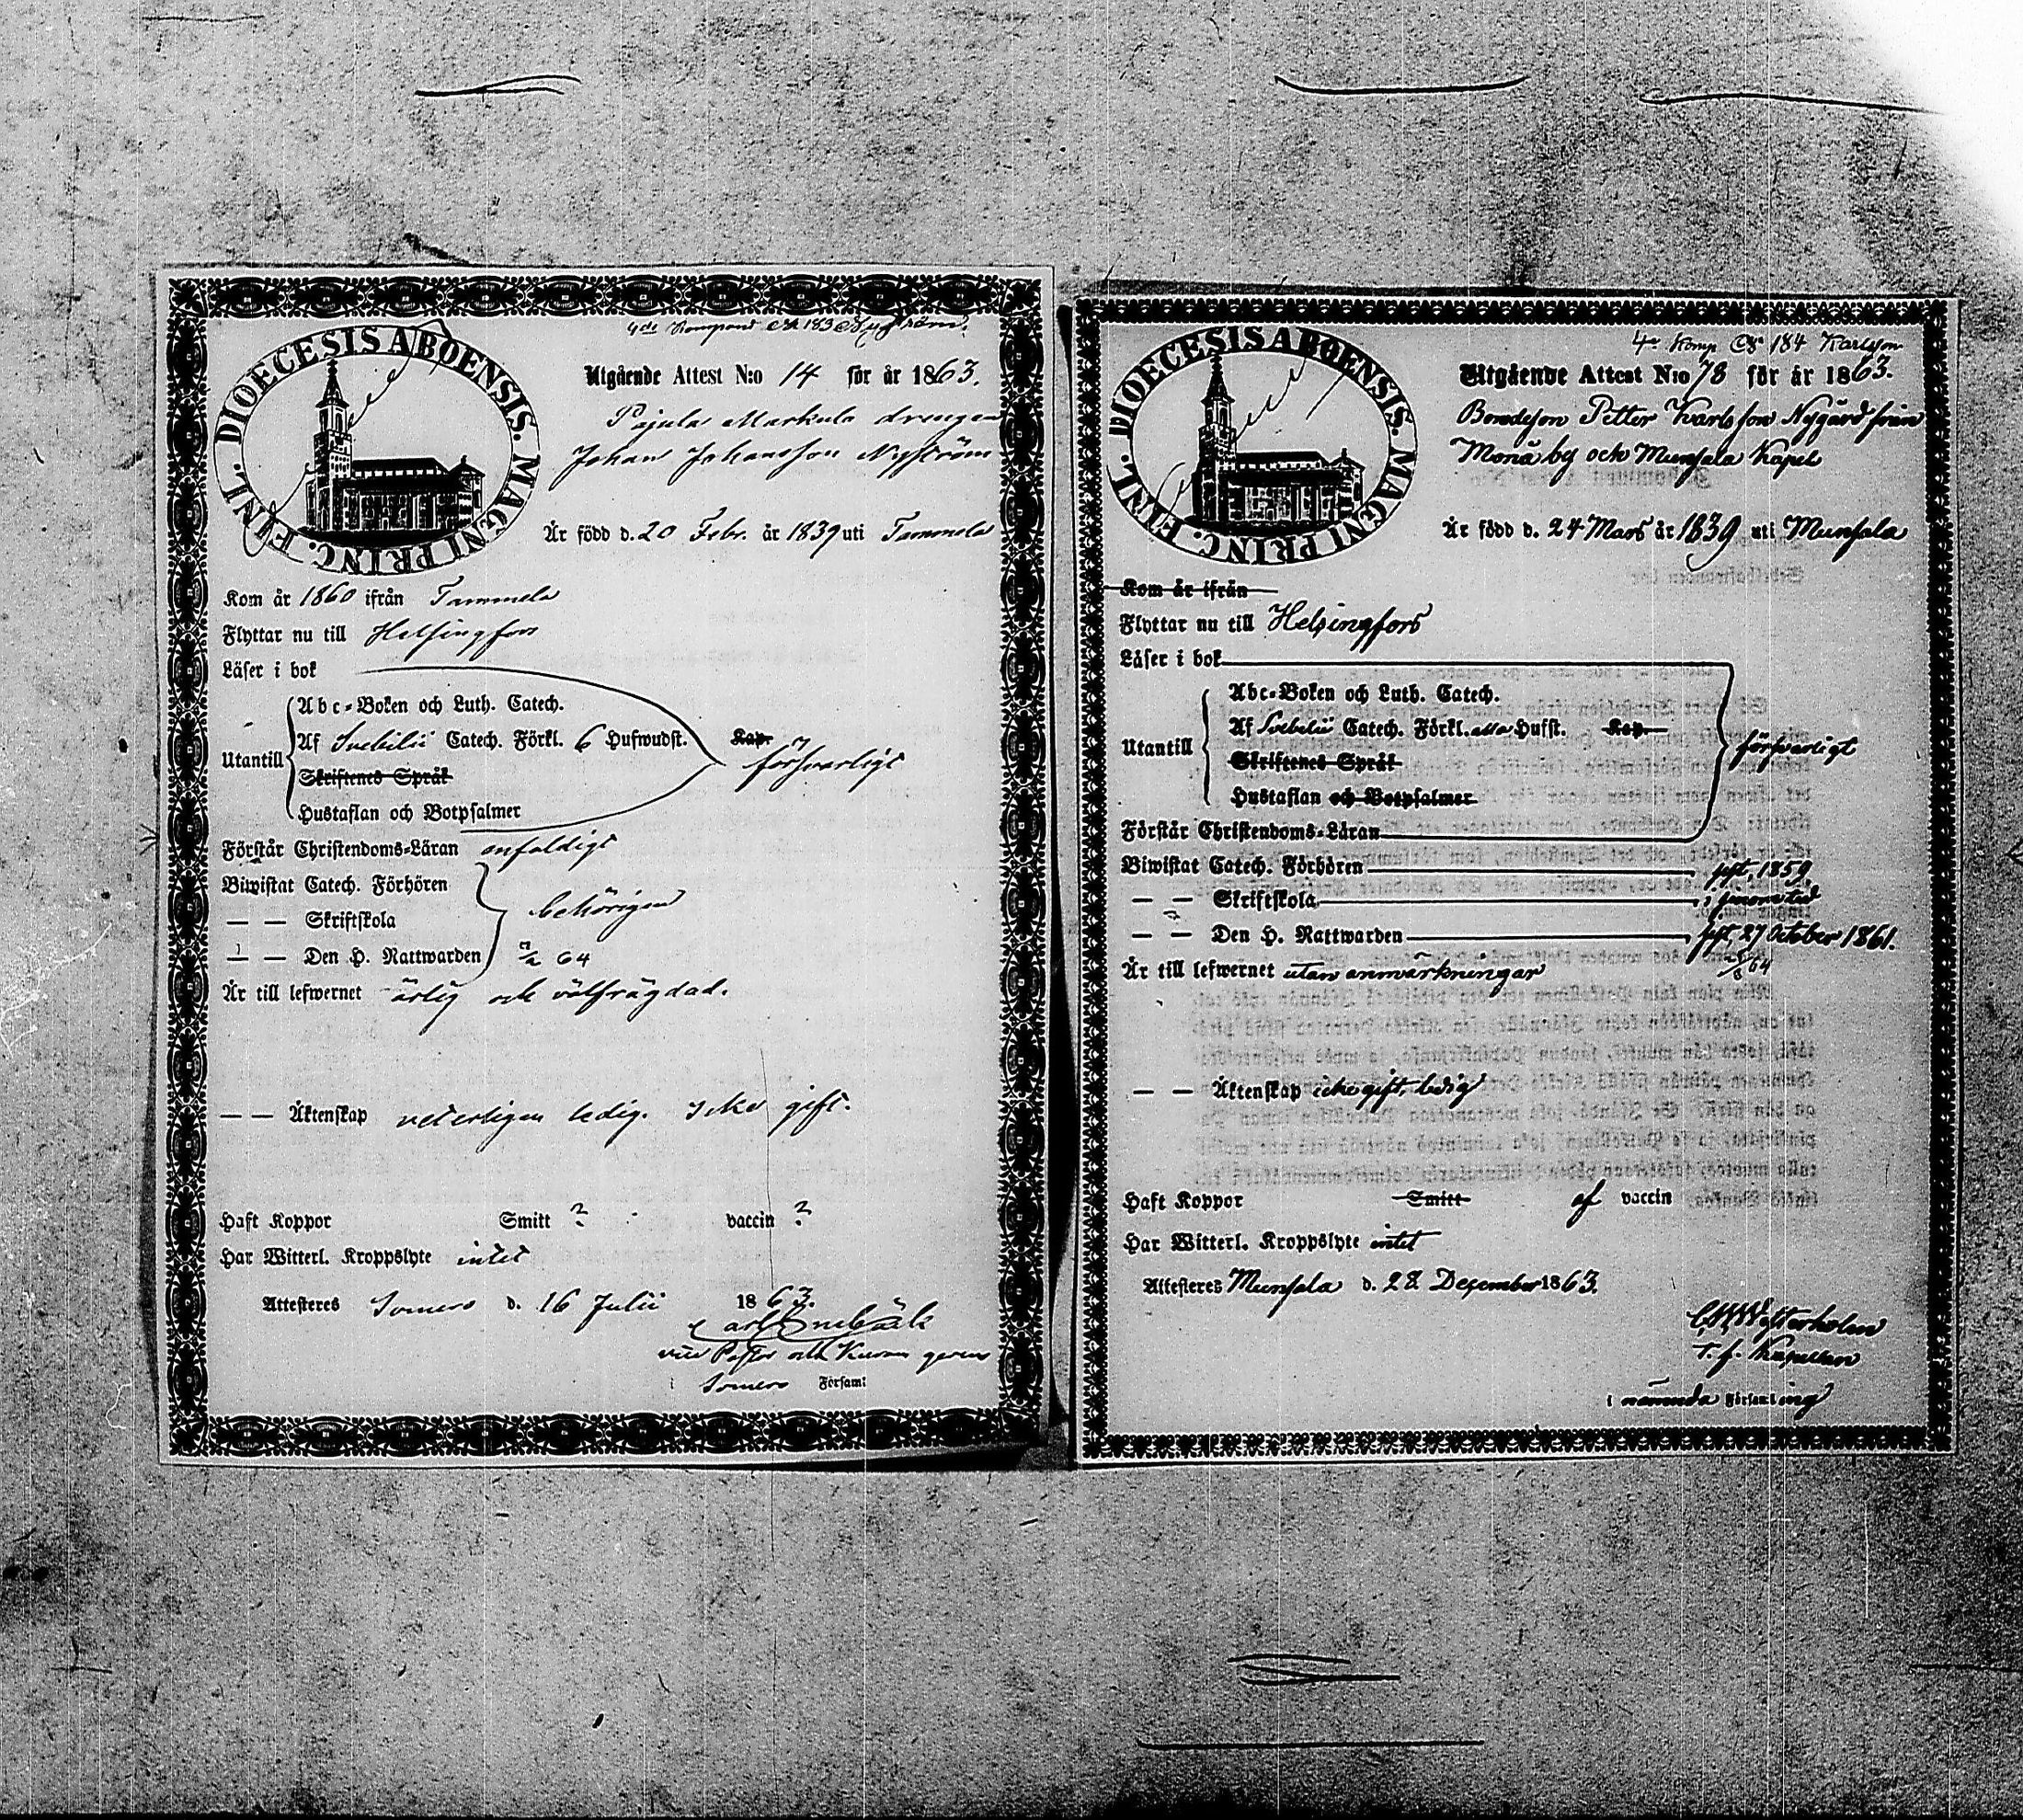 4de Kompani No 183 Nyström.
DIOECESIS ABOENSIS. MAGNI PRINC. FINL.
Utgående Attest N:o 14 för år 1863.
Pajula Markula drengen
Johan Johansson Nyström
Är född d. 20 Febr. år 1839 uti Tammela
Kom år 1860 ifrån Tammela
Flyttar nu till Helsingfors
Läser i bok
Utantill
Abc-Boken och Luth. Catech.
Af Svebilii Catech. Förkl. 6 Hufwudst. Kap.
försvarligt
Skriftenes Språk
Hustaflan och Botpsalmer
Förstår Christendoms-Läran enfaldigt
Biwistat Catech. Förhören
behörigen
— — Skriftskola
— — Den H. Nattwarden 64
Är till lefwernet ärlig och välfrägdad.
— — Äktenskap veterligen ledig. Icke gift.
Haft Koppor Smitt ? vaccin ?
Har Witterl. Kroppslyte intet
Attesteres Somero d. 16 Julii 1863.
Carl Enebäck
vice Pastor och Kuram gerens
i Somero Församl
4e Komp No 184 Karlsson
DIOECESIS ABOENSIS. MAGNI PRINC. FINL.
Utgående Attest N:o 78 för år 1863.
Bondeson Petter Karlsson Nygård från
Monå by och Munsala Kapel
Är född d. 24 Mars år 1839 uti Munsala
Kom år ifrån
Flyttar nu till Helsingfors
Läser i bok
Utantill
Abc-Boken och Luth. Catech.
Af Svebelii Catech. Förkl. alla Hufst. Kap.
försvarligt
Skriftenes Språk
Hustaflan och Botpsalmer
Förstår Christendoms-Läran
Biwistat Catech. Förhören sist, 1859
— — Skriftskola, i sinom tid
— — Den H. Nattwarden sist, 27 October 1861.
Är till lefwernet utan anmärkningar 64
— — Äktenskap icke gift, ledig
Haft Koppor Smitt af vaccin
Har Witterl. Kroppslyte intet
Attesteres Munsala d. 28 December 1863.
Westerholm
T. f. Kapellan
i nämnda Församling